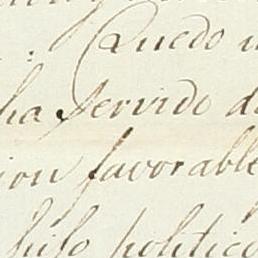 Quedo
ha servido d
ion favorable
hijo politico